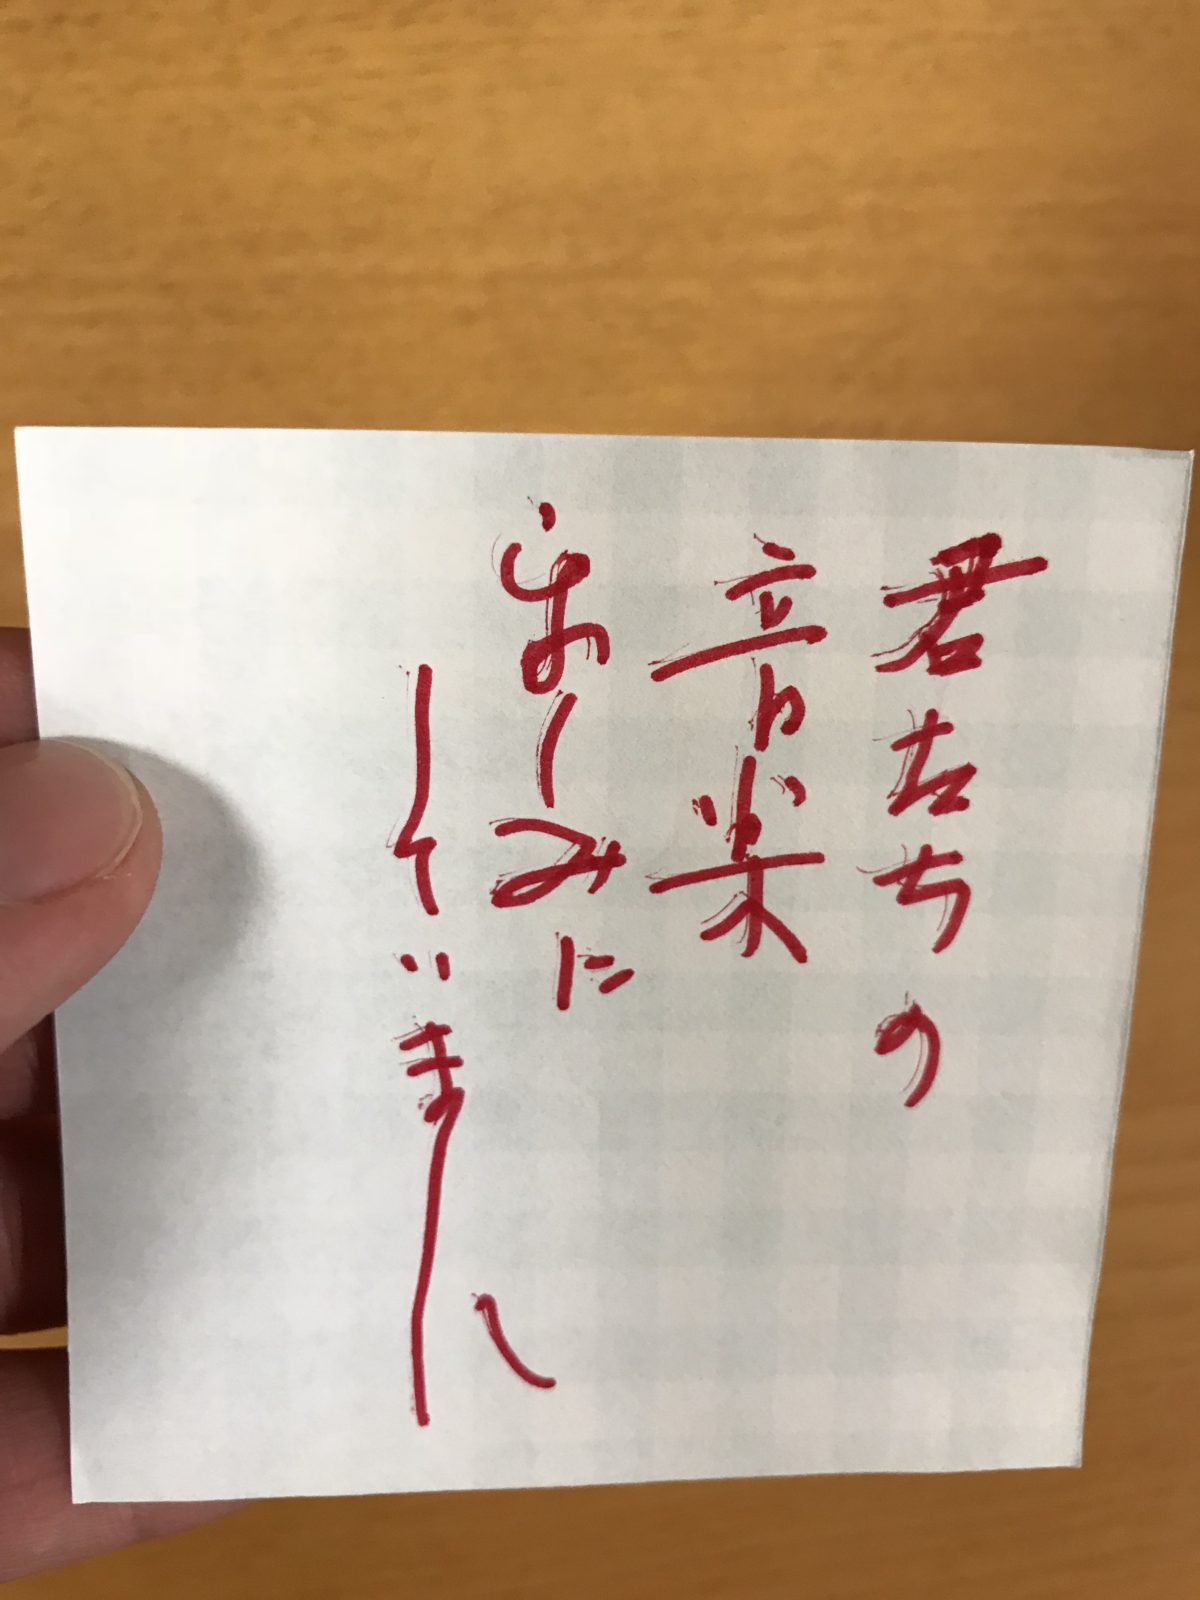 君たちの
音楽
楽しみに
しています